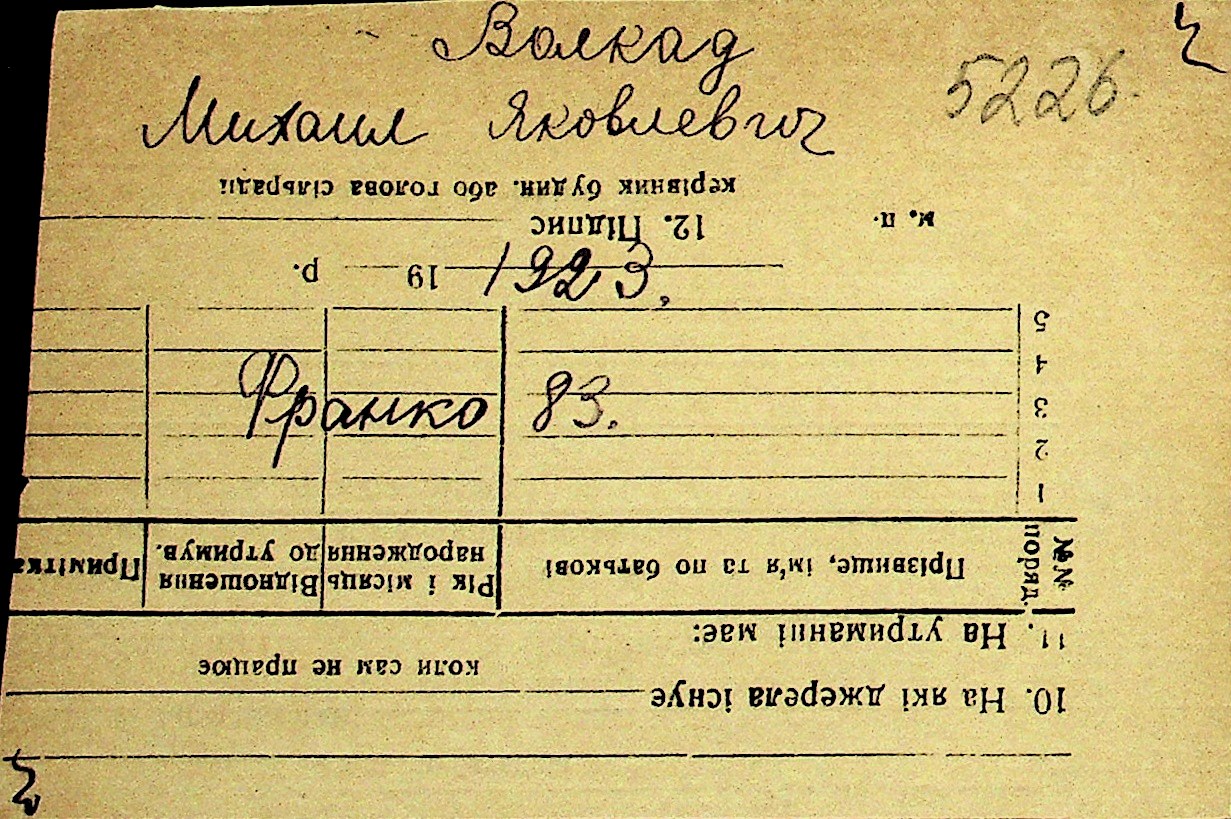 Волкад
Михаил Яковлевич
5226.
1923.
Франко 83.
10. На які джерела існує
коли сам не працює
11. На утриманні має:
№№ поряд. Прізвище, ім'я та по батькові Рік і місяць народження Відношення до утримув. Примітка
1
2
3
4
5
19 р.
м. п. 12. Підпис
керівник будин. або голова сільради